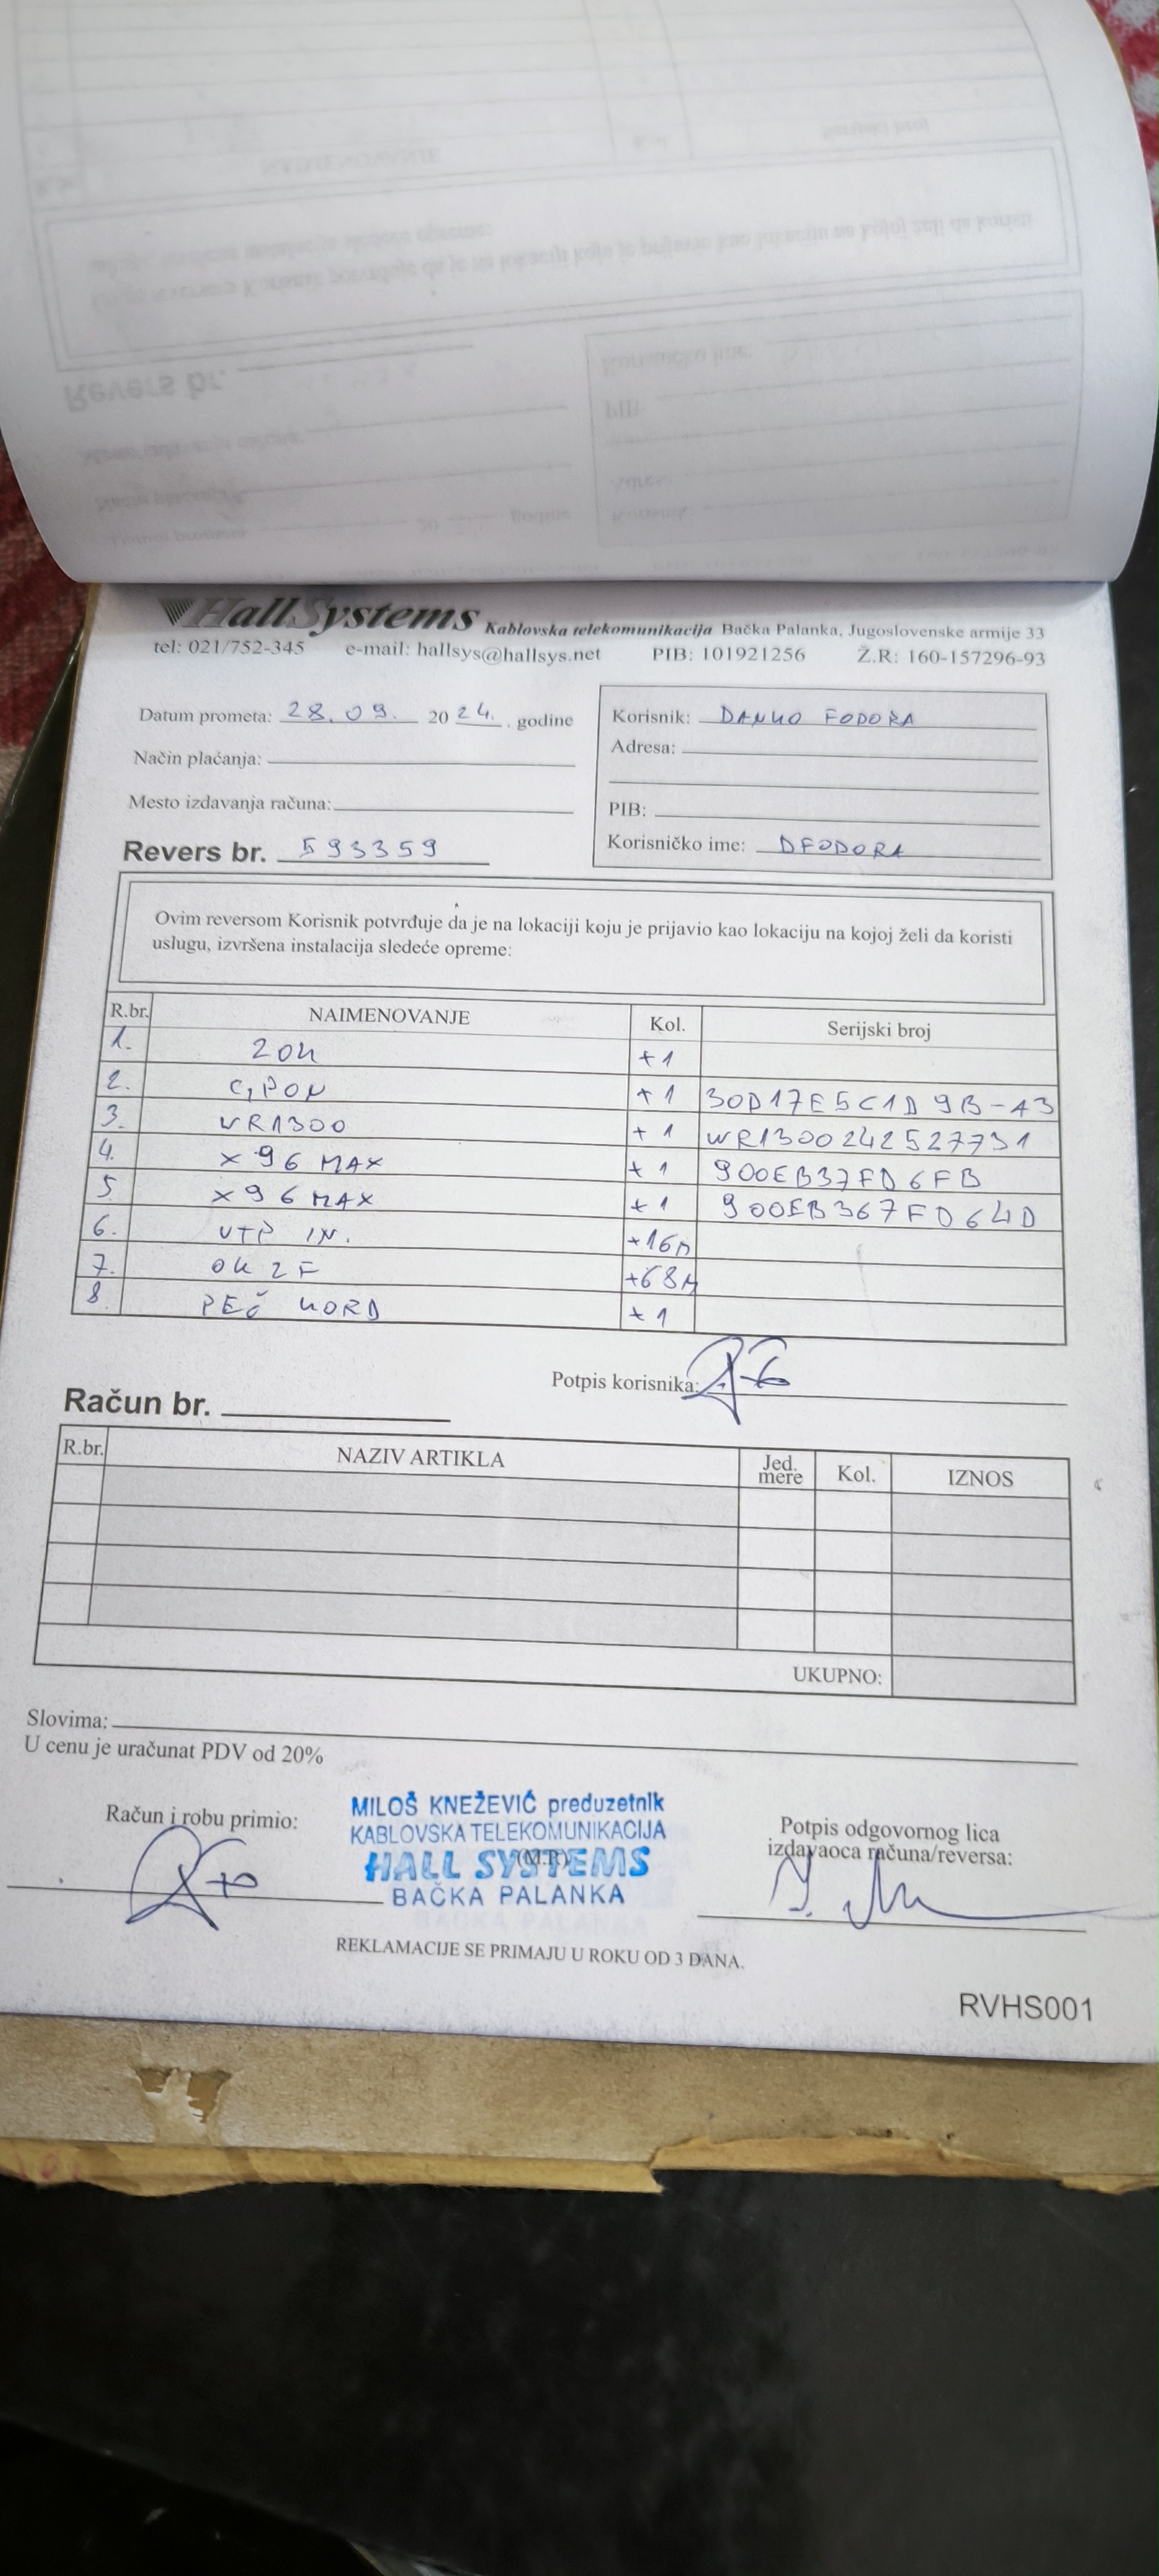 HallSystems Kablovska telekomunikacija Bačka Palanka, Jugoslovenske armije 33
tel: 021/752-345 e-mail: hallsys@hallsys.net PIB: 101921256 Ž.R: 160-157296-93
Datum prometa: 28.09. 2024. godine
Način plaćanja:
Mesto izdavanja računa:
Revers br. 593359
Korisnik: DANKO FODORA
Adresa:
PIB:
Korisničko ime: DFODORA
Ovim reversom Korisnik potvrđuje da je na lokaciji koju je prijavio kao lokaciju na kojoj želi da koristi
uslugu, izvršena instalacija sledeće opreme:
R.br. NAIMENOVANJE Kol. Serijski broj
1. ZOK +1
2. GPON +1 30D17E5C1D9B-A3
3. WR1300 +1 WR1300242527731
4. X96 MAX +1 900EB37FD6FB
5. X96 MAX +1 900EB367FD64D
6. UTP IN. +16M
7. OK 2F +68M
8. PEČ KORD +1
Potpis korisnika:
Račun br.
R.br. NAZIV ARTIKLA Jed. mere Kol. IZNOS
UKUPNO:
Slovima:
U cenu je uračunat PDV od 20%
Račun i robu primio:
MILOŠ KNEŽEVIĆ preduzetnik
KABLOVSKA TELEKOMUNIKACIJA
(M.P.)
HALL SYSTEMS
BAČKA PALANKA
Potpis odgovornog lica
izdavaoca računa/reversa:
REKLAMACIJE SE PRIMAJU U ROKU OD 3 DANA.
RVHS001